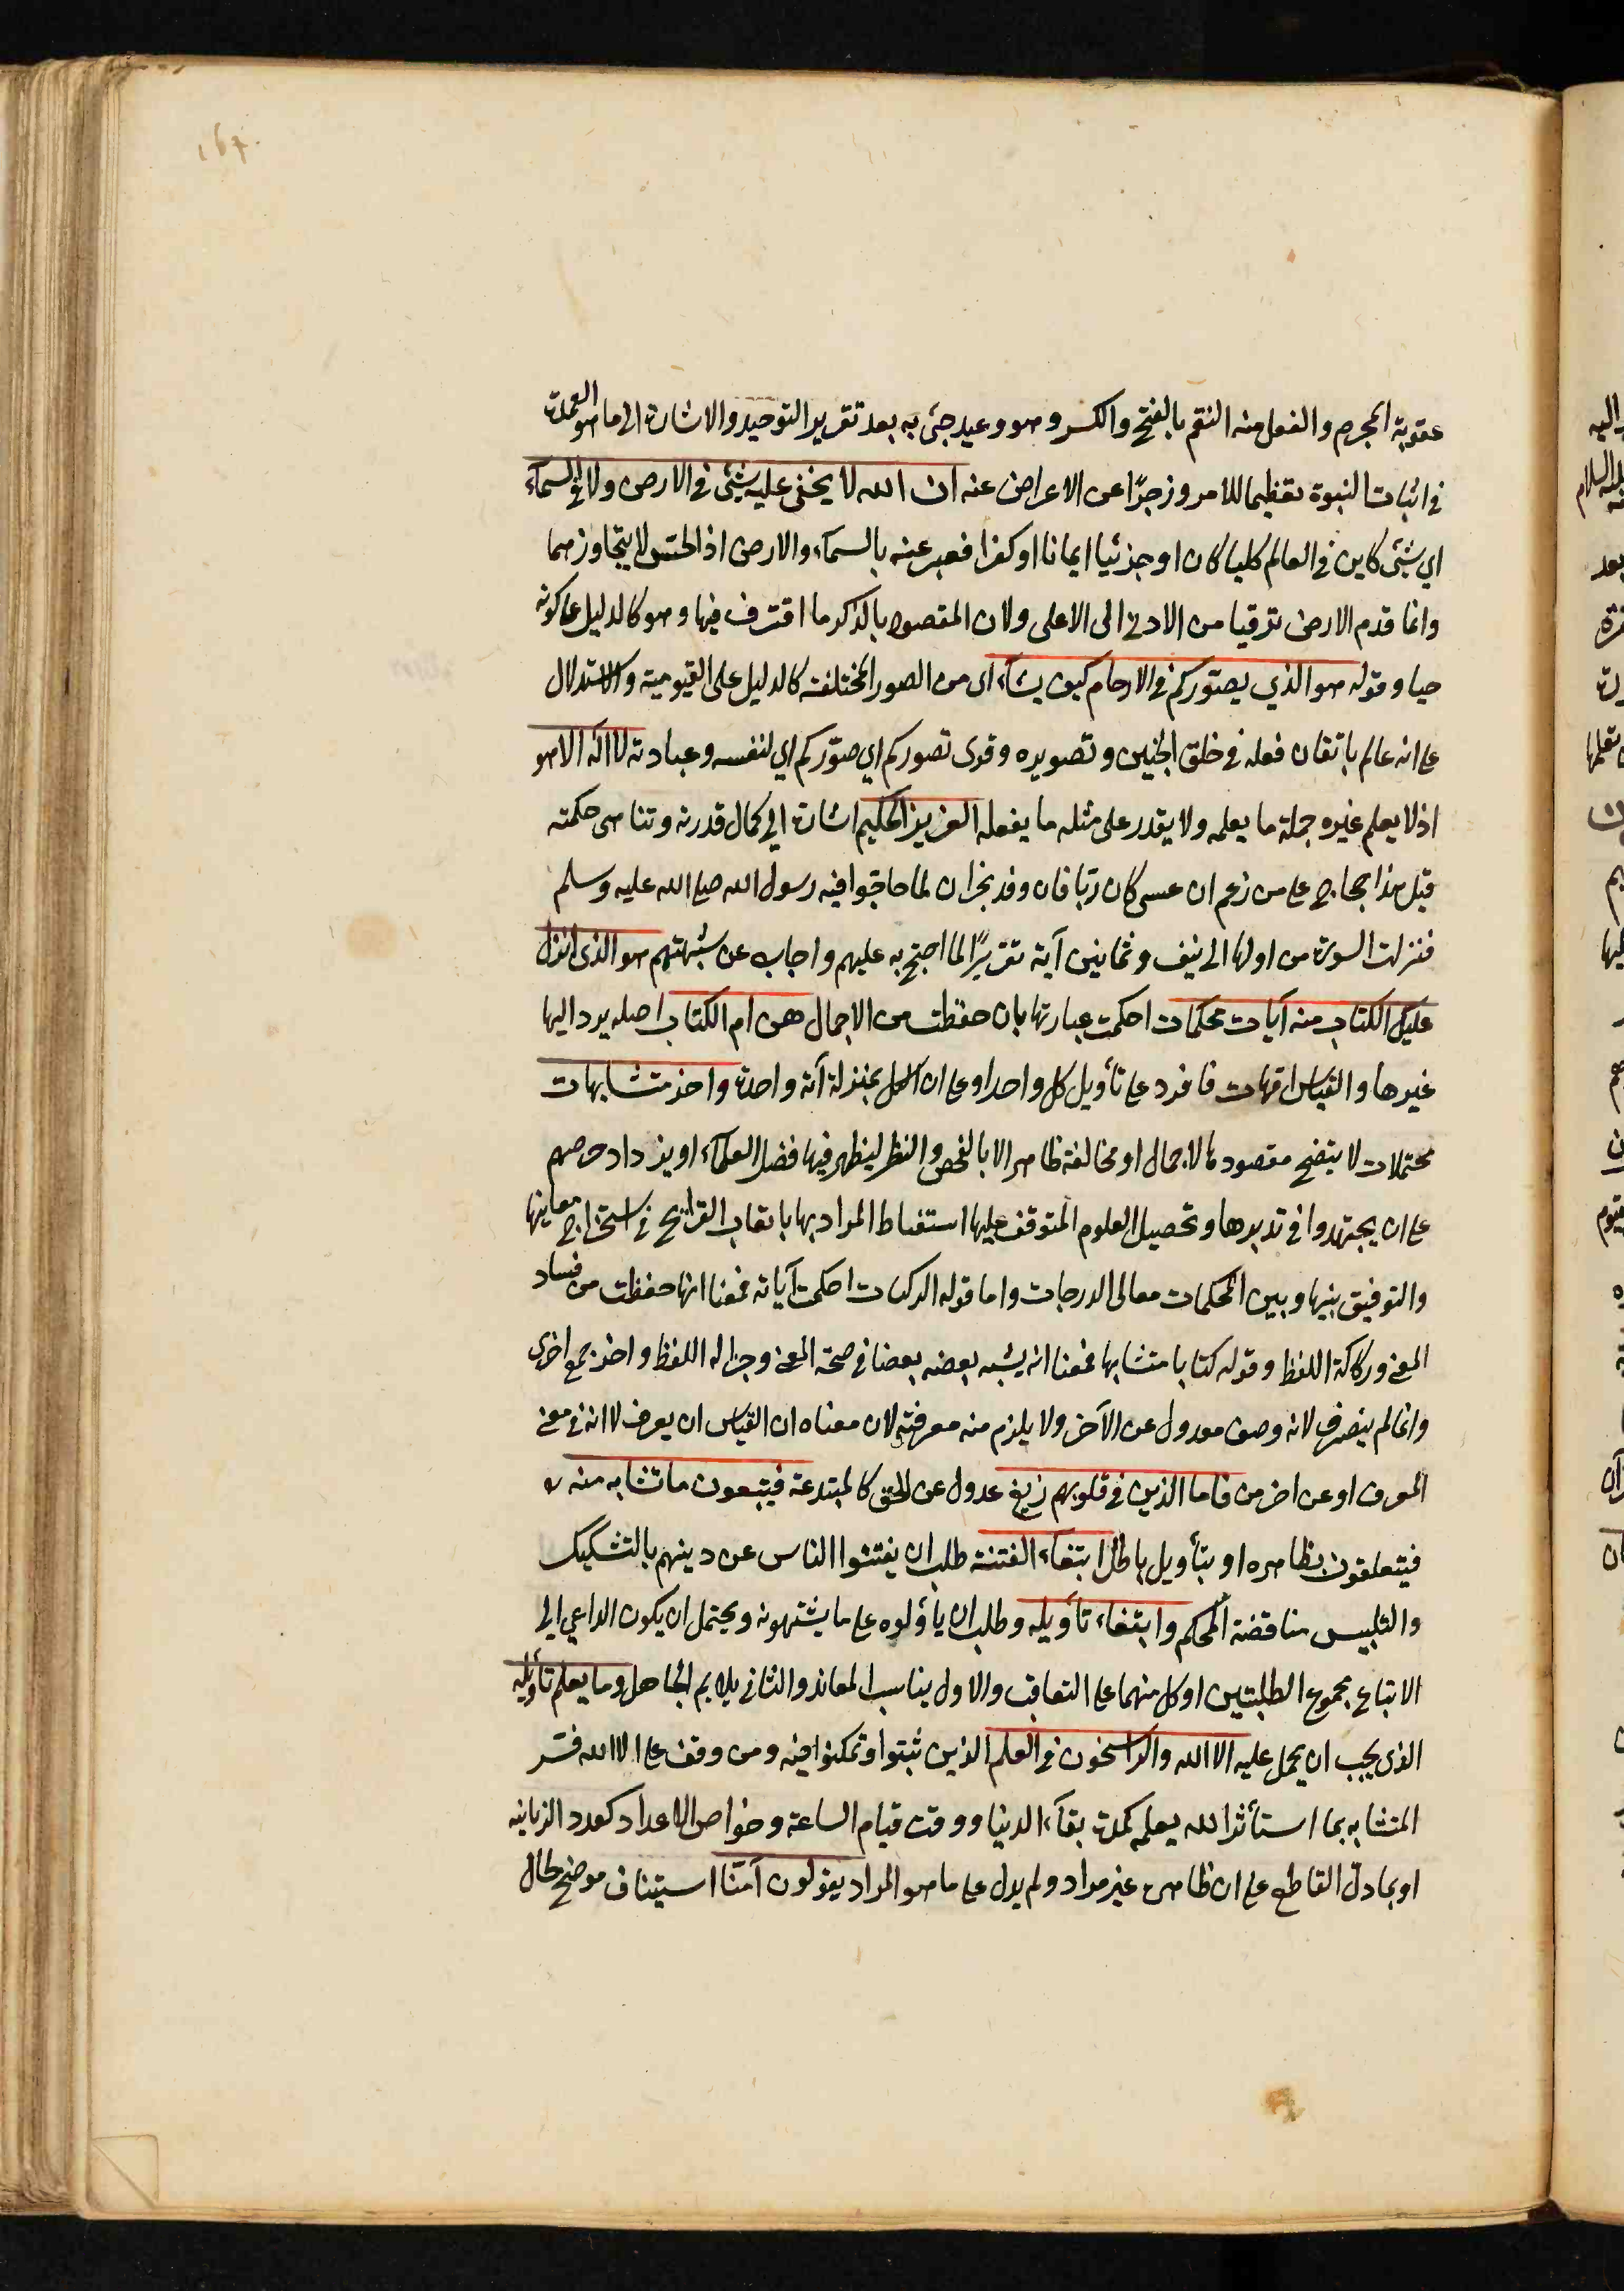 عقوبة المجرم والفعل منه النقم بالفتح والكسر وهو وعيد جئ به بعد تقرير التوحيد والاشارة الى ما هو العمدة
في اثبات النبوة تعظيما للامر وزجرًا عن الاعراض عنه ان الله لا يخفى عليه شئ في الارض ولا في السماء
اي شئ كاين في العالم كليا كان او جزئيا ايمانا او كفرا فعبر عنه بالسماء والارض اذ الحس لا يتجاوزهما
وانما قدم الارض ترقيا من الادنى الى الاعلى ولان المقصود بالذكر ما اقترف فيها وهو كالدليل على كونه
حيا وقوله هو الذي يصوركم في الارحام كيف يشاء اى من الصور المختلفة كالدليل على القيومية والاستدلال
على انه عالم باتقان فعله في خلق الجنين وتصويره وقرى تصوركم اي صوّركم اي لنفسه وعبادته لا اله الا هو
اذ لا يعلم غيره جملة ما يعلمه ولا يقدر على مثله ما يفعله العزيز الحكيم اشارة الي كمال قدرته وتناهى حكمته
قيل هذا حجاج على من زعم ان عسى كان ربّا فان وفد نجران لما حاجّوا فيه رسول الله صلى الله عليه وسلم
فنزلت السورة من اولها الى نيف وثمانين آية تقريرًا لما احتج به عليهم واجاب عن شبهتهم هو الذى انزل
عليك الكتاب منه آيات محكمات احكمت عبارتها بان حفظت من الاجمال هن ام الكتاب اصله يرد اليها
غيرها والقياس امّهات فافرد على تأويل كل واحد او على ان الكل بمنزلة آية واحدة واخر متشابهات
محتملات لا يتضح مقصودها لاجمال او مخالفة ظاهر الا بالفحص والنظر ليظهر فيها فضل العلماء او يزداد حرصهم
على ان يجتهدوا في تدبرها وتحصيل العلوم المتوقف عليها استنباط المراد بها باتعاب القرايح في استخراج معاينها
والتوفيق بينها وبين المحكمات معالى الدرجات واما قوله الر كتاب احكمت آياته فمعنا انها حفظت من فساد
المعنى وركاكة اللفظ وقوله كتابا متشابها فمعنا انه يشبه بعضه بعضا في صحة المعنى وجزالة اللفظ واخر جمع اخرى
وانما لم ينصرف لانه وصف معدول عن الآخر ولا يلزم منه معرفته لان معناه ان القياس ان يعرف لا انه في معنى
المعرف او عن اخر من فاما الذين في قلوبهم زيغ عدول عن الحق كالمبتدعة فيتبعون ما تشابه منه
فيتعلقون بظاهره او بتأويل باطل ابتغاء الفتنة طلب ان يفتنوا الناس عن دينهم بالتشكيك
والتلبيس مناقضة المحكم وابتغاء تأويله وطلب ان يأولوه على ما يشتهونه ويحتمل ان يكون الداعي الى
الاتباع مجموع الطلبتين او كل منهما على التعاقب والاول يناسب المعاند والثاني يلايم الجاهل وما يعلم تأويله
الذى يجب ان يحمل عليه الا الله والراسخون في العلم الذين ثبتوا وتمكنوا فيه ومن وقف على الا الله فسّر
المتشابه بما استأثر الله بعلمه كمدة بقاء الدنيا ووقت قيام الساعة وخواص الاعداد كعدد الزبانيه
او بما دلّ القاطع على ان ظاهره غير مراد ولم يدل على ما هو المراد يقولون آمنّا استيناف موضح لحال